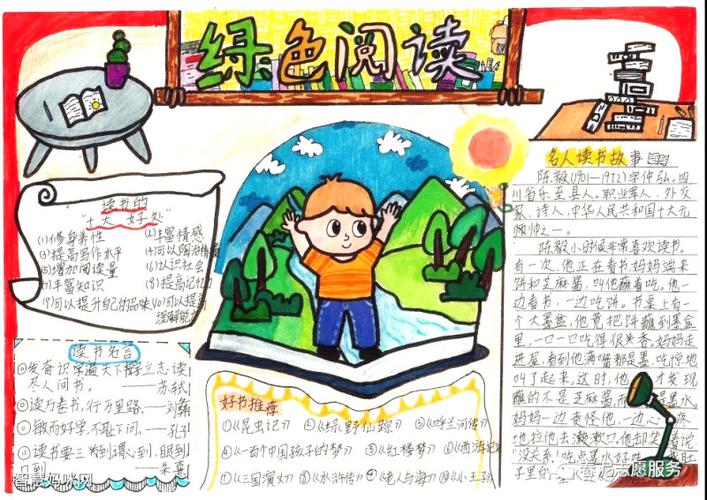 绿色阅读
读书的
"十大"好处
(1)修身养性
(2)丰富情感
(3)提高写作水平
(4)可以陶冶情
(5)增加阅读量
(6)认识社会
(7)丰富知识
(8)提高记忆力
(9)可以提升自己的品味
(10)可以提高
理解能力
读书名言
①发奋识遍天下字,立志读
尽人间书。——苏轼
②读万卷书,行万里路。——刘彝
③敏而好学,不耻下问。——孔子
④读书要三到:谓心到、眼到
口到 ——朱熹
好书推荐
①《昆虫记》 ②《绿野仙踪》 ③《呼兰河传》
④《一百个中国孩子的梦》 ⑤《红楼梦》 ⑥《西游记》
⑦《三国演义》 《水浒传》 《老人与海》 《小王子
名人读书故事
陈毅(1901-1972)字仲弘。四
川省乐至县人。职业军人、外交
家、诗人,中华人民共和国十大元
帅之一。
陈毅小时候非常喜欢读书。
有一次,他正在看书妈妈端来
饼和芝麻酱,叫他蘸着吃。他一
边看书,一边吃饼。书桌上有一
个大墨盒,他竟把饼蘸到墨盒
里,一口一口吃得很香。妈妈走
进屋,看到他满嘴都是墨,吃惊地
叫了起来。这时,他才发现
蘸的不是芝麻酱,而是墨水
妈妈一边责怪他,一边心疼
地拉他去漱口。他却笑着说
"没关系!吃点墨水好 肚
子里
智慧妈咪网
春泥志愿服务